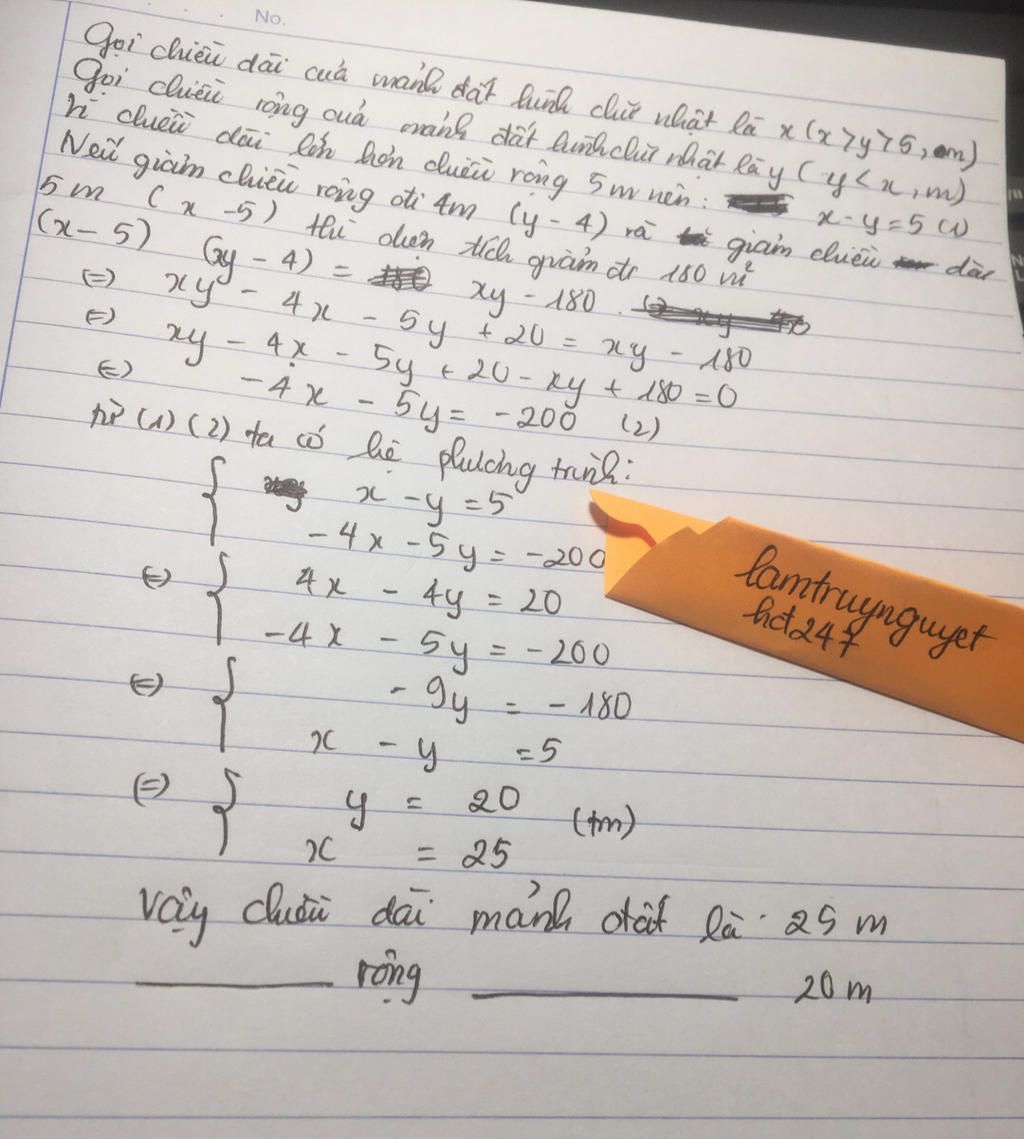 No.
Gọi chiều dài của mảnh đất hình chữ nhật là x (x > y > 5, m)
Gọi chiều rộng của mảnh đất hình chữ nhật là y ( y < x, m)
Vì chiều dài lớn hơn chiều rộng 5m nên: x - y = 5 (1)
Nếu giảm chiều rộng đi 4m (y - 4) và giảm chiều dài
5m (x - 5) thì diện tích giảm đi 180 m²
(x - 5) (y - 4) = xy - 180.
(=) xy - 4x - 5y + 20 = xy - 180
(=) xy - 4x - 5y + 20 - xy + 180 = 0
(=) - 4x - 5y = - 200 (2)
từ (1) (2) ta có hệ phương trình:
x - y = 5
- 4x - 5y = - 200
(=) 4x - 4y = 20
- 4x - 5y = - 200
(=) - 9y = - 180
x - y = 5
(=) y = 20 (tm)
x = 25
lamtruynguyet
hd247
Vậy chiều dài mảnh đất là 25 m
rộng 20 m